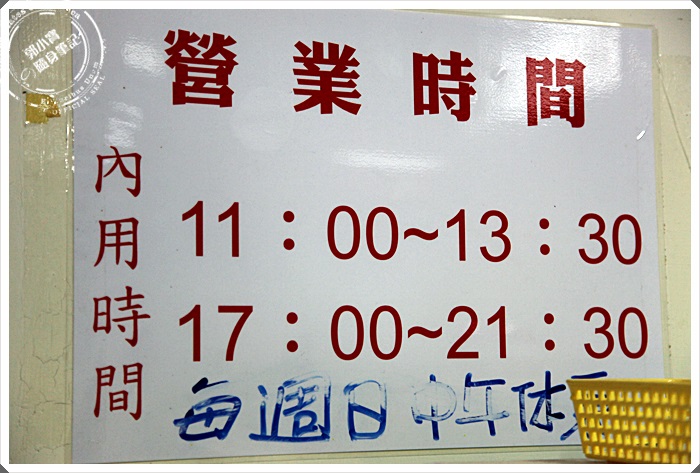 營業時間
內用時間
11：00~13：30
17：00~21：30
每週日中午休